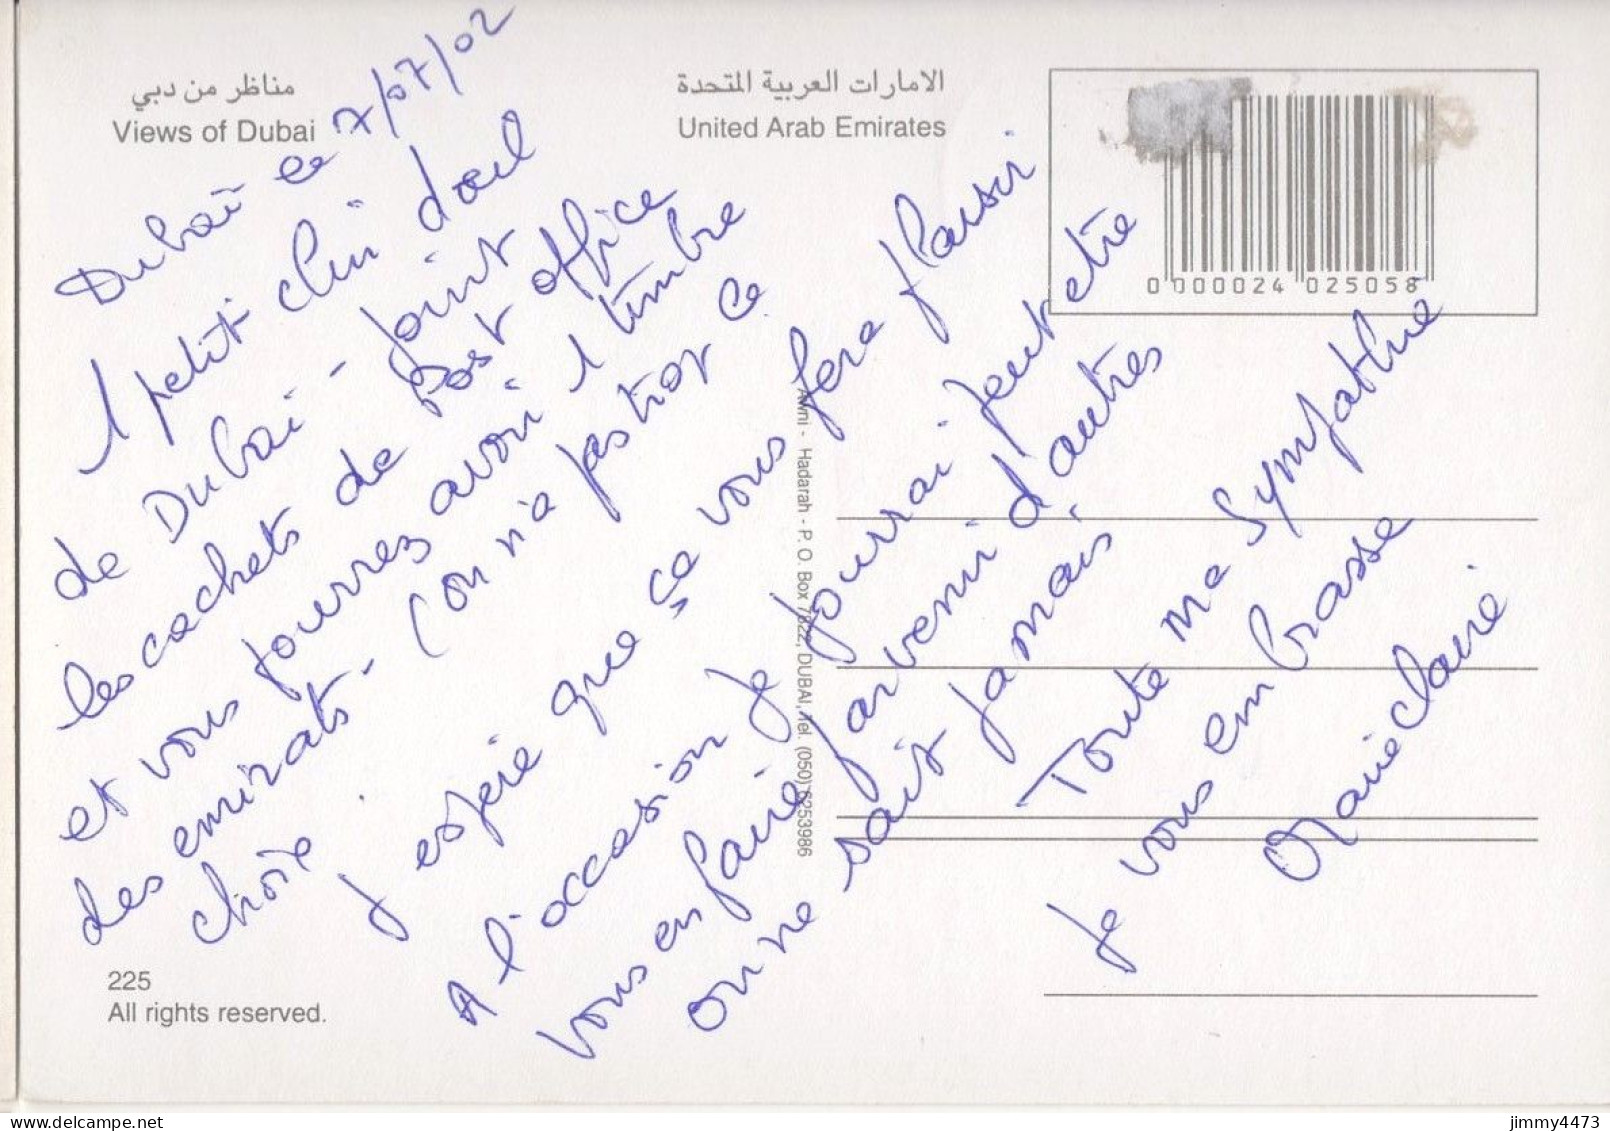 مناظر من دبي
Views of Dubai
الامارات العربية المتحدة
United Arab Emirates
0 000024 025058
Dubaï ce 7/07/02
1 petit clin d'oeil
de Dubaï - joint
les cachets de Post office
et vous pourrez avoir 1 timbre
des emirats - (on n'a pas trop ce
choix.
J'espère que ça vous fera plaisir
A l'occasion je pourrai peut etre
vous en faire parvenir d'autres
on ne sait jamais
Toute ma Sympathie
Je vous embrasse
Marie Claire
Hadarah - P. O. Box 7822, DUBAI, Tel. (050) 6253986
225
All rights reserved.
delcampe.net
jimmy4473